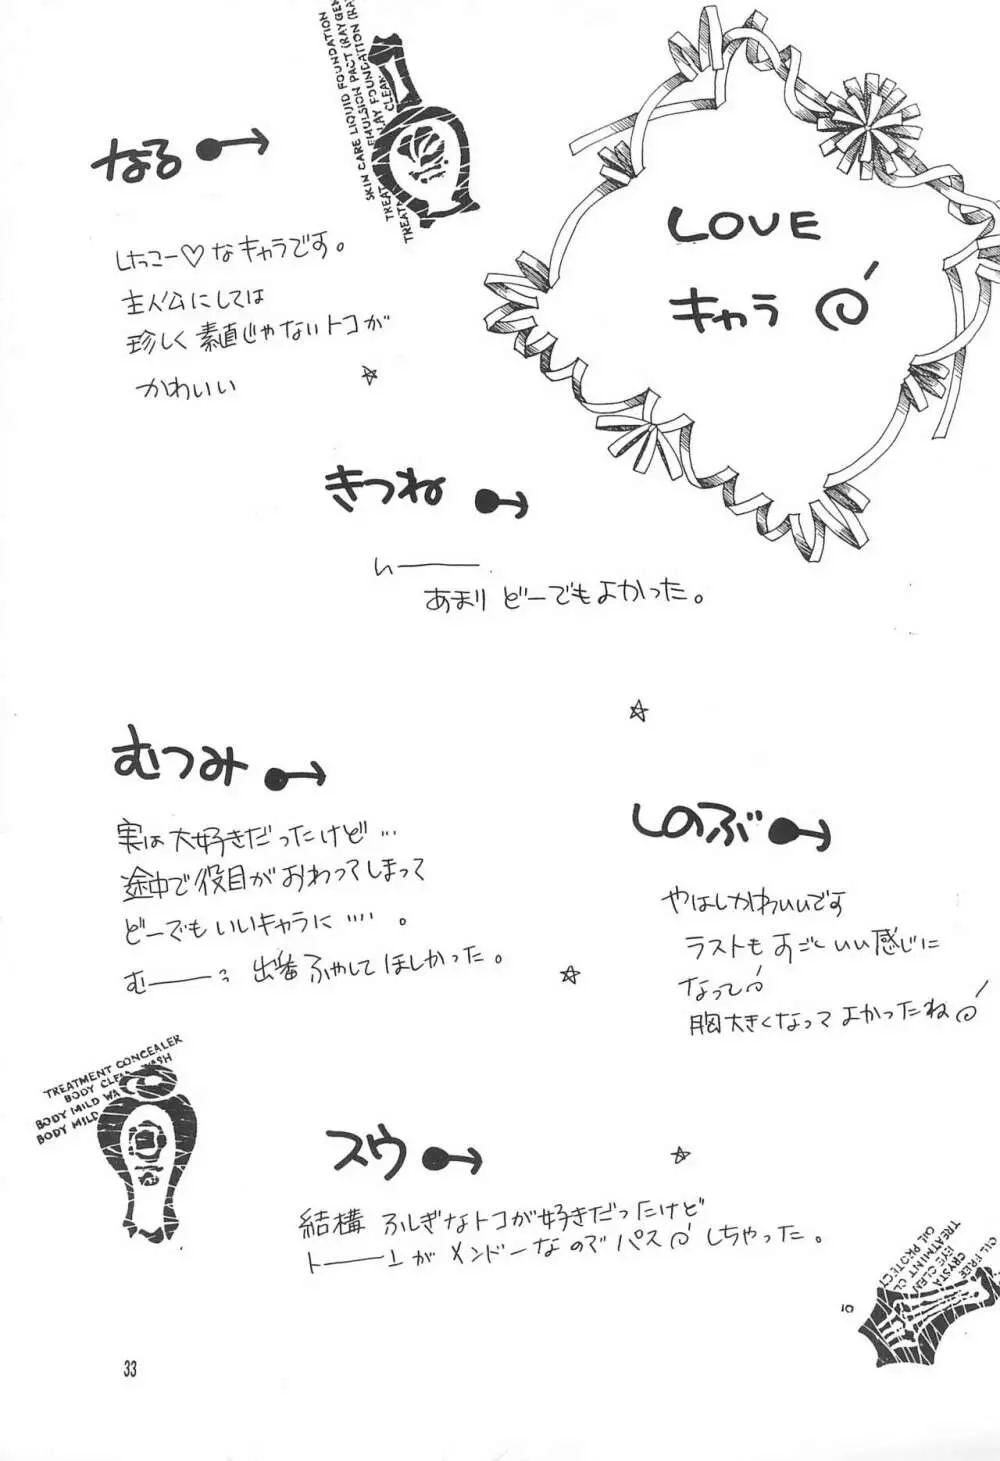 LOVE
キャラ
なる
しっこー♡なキャラです。
主人公にしては
珍しく素直じゃないトコが
かわいい
きつね
いーーー
あまりどーでもよかった。
むつみ
実は大好きだったけど…
途中で役目がおわってしまって
どーでもいいキャラに….。
むーーー 出番ふやしてほしかった。
しのぶ
やはしかわいいです
ラストもすごくいい感じに
なって
胸大きくなってよかったね
スウ
結構 ふしぎなトコが好きだったけど
トーーーンがメンドーなのでパスしちゃった。
SKIN CARE LIQUID FOUNDATION
EMULSION PACT (RAY GEN
TREAT
LAY FOUNDATION (RA
TREATM
CLEAR
TREATMENT CONCEALER
BODY CLE
WASH
BODY MILD WA
BODY MILD
OIL FREE
CRYSTA
EYE CLEN
TREATMINT CL
OIL PROTECT
10
33